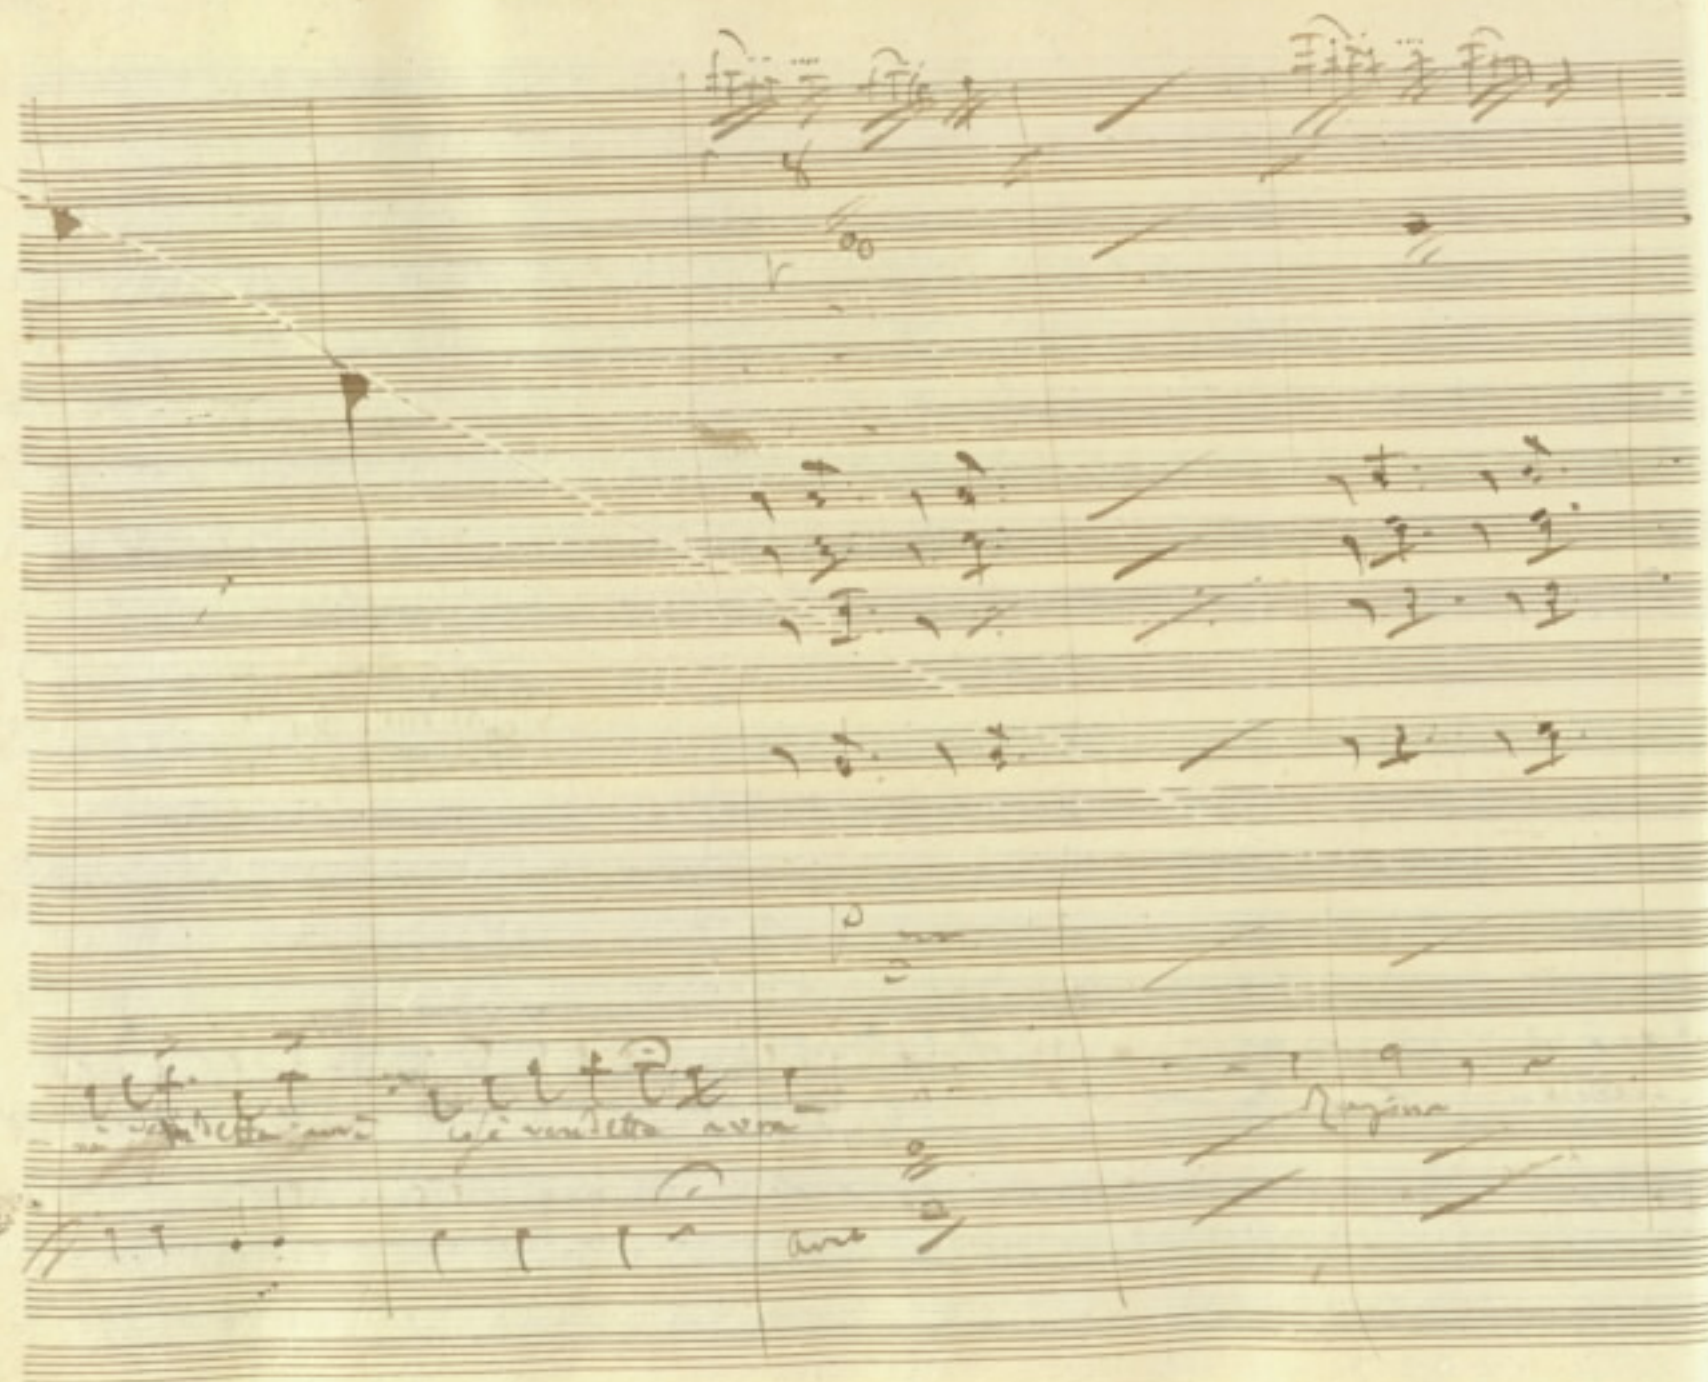 vendetta avrà vendetta avrà
Regina
arco